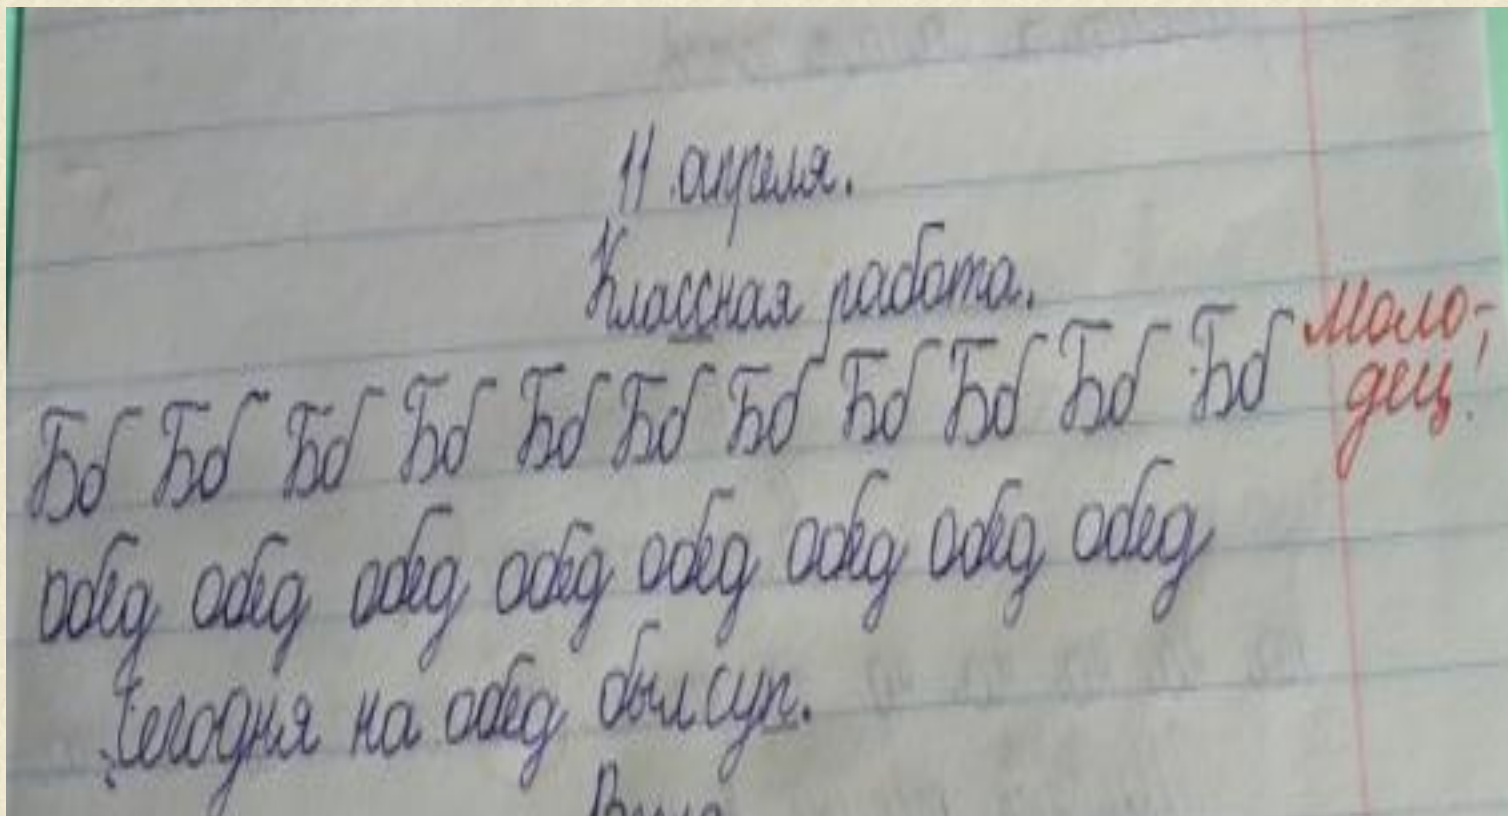 11 апреля.
Классная работа.
Бб Бб Бб Бб Бб Бб Бб Бб Бб Бб Бб
Моло-
дец!
обед обед обед обед обед обед обед обед
Сегодня на обед был суп.